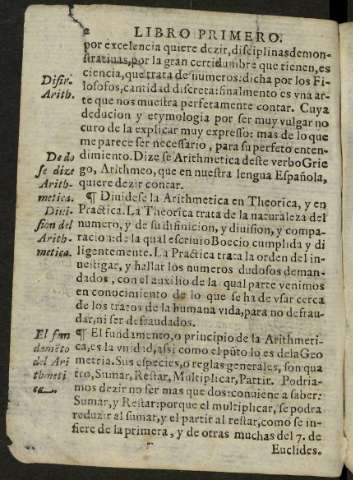 LIBRO PRIMERO.
por excelencia quiere dezir, disciplinas demon-
stratiuas, por la gran certidumbre que tienen, es
ciencia, que trata de numeros: dicha por los Fi-
losofos, cantidad discreta: finalmento es vna ar-
te que nos muestra perfetamente contar. Cuya
deducion y etymologia por ser muy vulgar no
curo de la explicar muy expresso: mas de lo que
me parece ser necessario, para su perfeto enten-
dimiento. Dize se Arithmetica deste verbo Grie
go, Arithmeo, que en nuestra lengua Española,
quiere dezir contar.
¶ Diuidese la Arithmetica en Theorica, y en
Practica. La Theorica trata de la naturaleza del
numero, y de su difinicion, y diuision, y compa-
racion: de la qual escriuio Boecio cumplida y di
ligentemente. La Practica trata la orden del in-
uestigar, y hallar los numeros dudosos deman-
dados, con el auxilio de la qual parte venimos
en conocimiento de lo que se ha de vsar cerca
de los tratos de la humana vida, para no defrau-
dar, ni ser defraudados.
¶ El fundamento, o principio de la Arithmeti-
ca, es la vnidad, assi como el pũto lo es dela Geo
metria. Sus especies, o reglas generales, son qua
tro, Sumar, Restar, Multiplicar, Partir. Podria-
mos dezir no ser mas que dos: conuiene a saber:
Sumar, y Restar: porque el multiplicar, se podra
reduzir al sumar, y el partir al restar, como se in-
fiere de la primera, y de otras muchas del 7. de
Euclides.
Difir.
Arith.
De do
se dize
Arith-
metica.
Diui-
sion del
Arith-
metica.
El fun
damẽto
del Ari
thmeti
ca